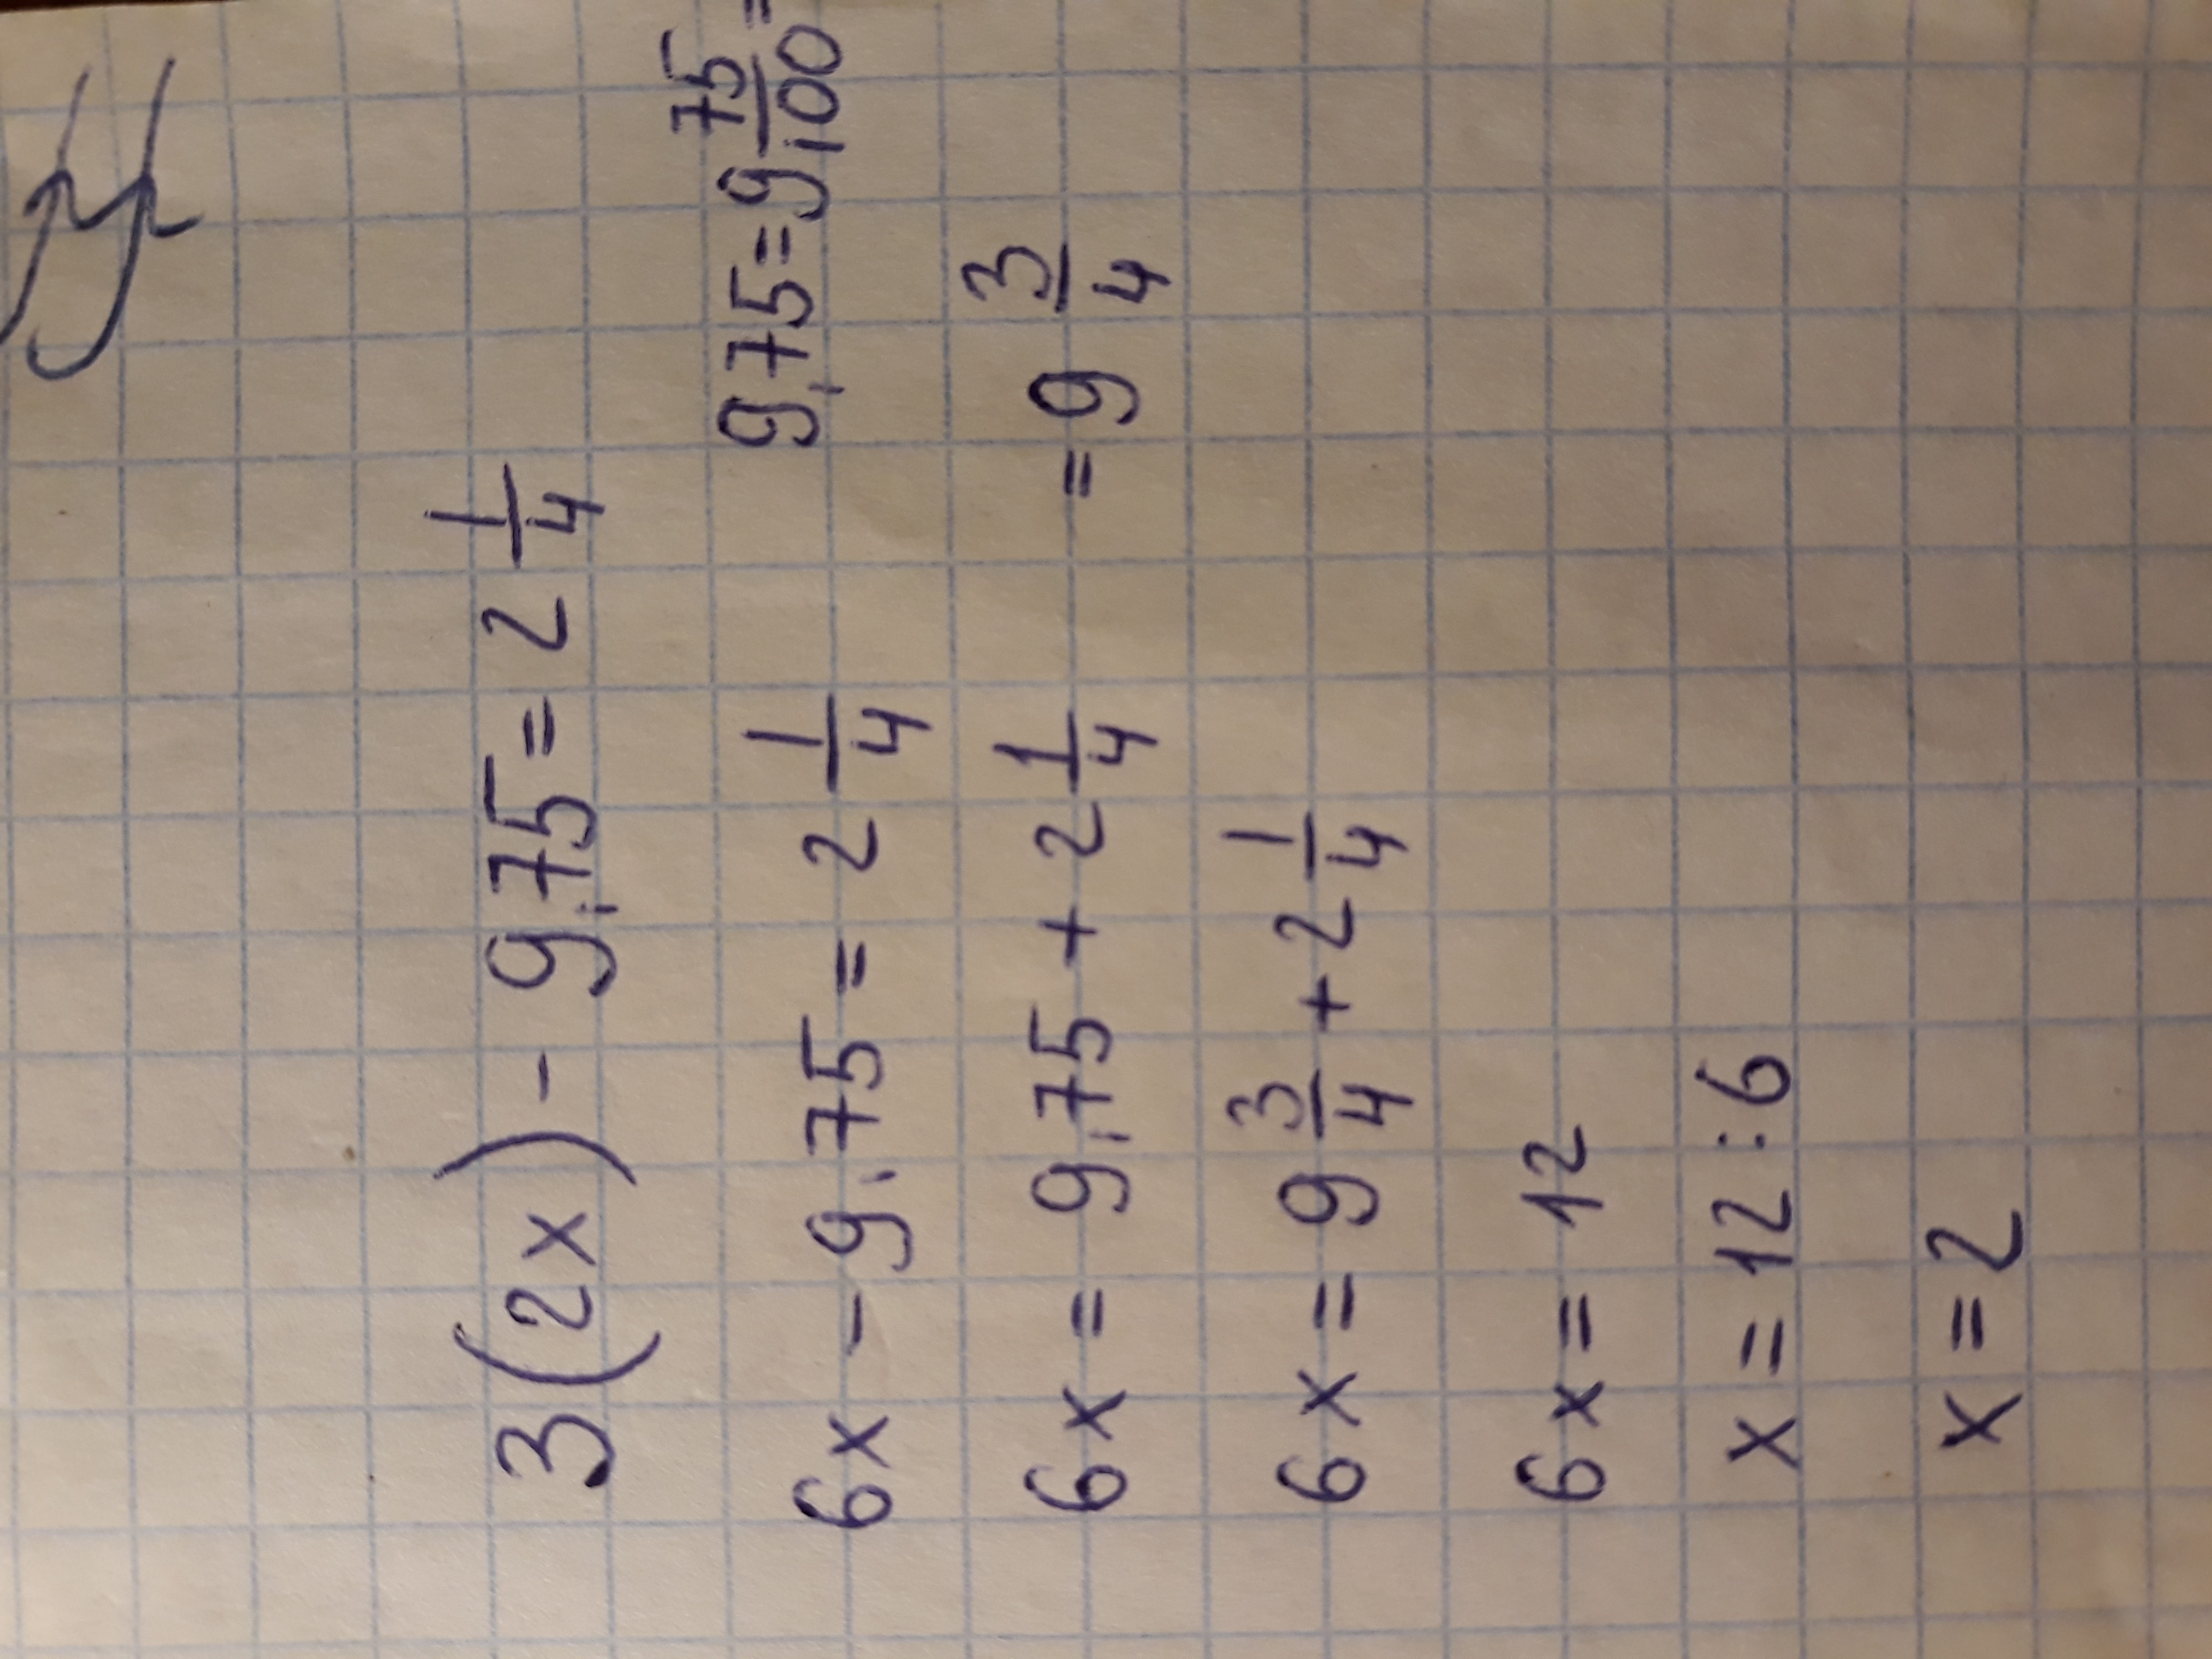 3(2x) - 9,75 = 2 1/4
6x - 9,75 = 2 1/4 9,75 = 9 75/100 =
6x = 9,75 + 2 1/4 = 9 3/4
6x = 9 3/4 + 2 1/4
6x = 12
x = 12 : 6
x = 2